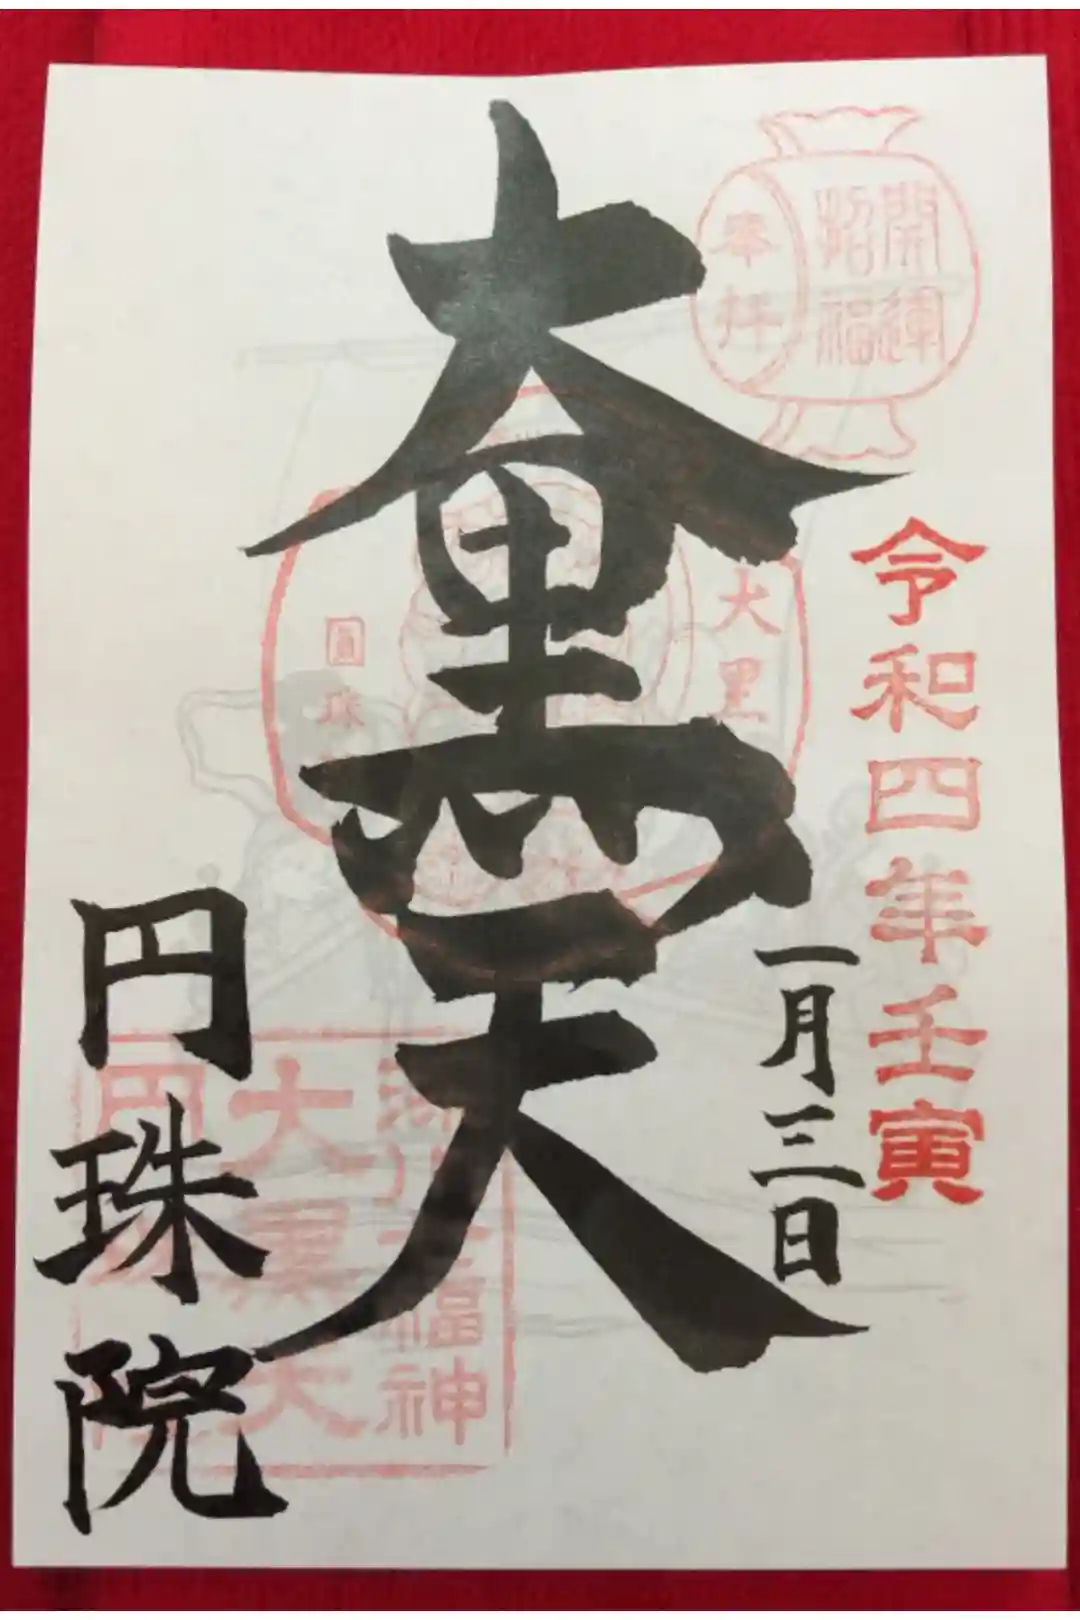 開運
招福
奉拝
令和四年壬寅
一月三日
大黒天
大黒
圓珠
七福神
大黒天
円珠院